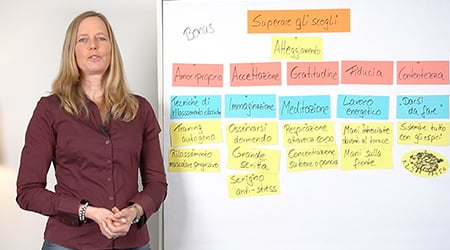 Bonus
Superare gli scogli
Atteggiamento
Amor proprio
Accettazione
Gratitudine
Fiducia
Contentezza
Tecniche di
rilassamento
Immaginazione
Meditazione
Lavoro
energetico
"Darsi
da fare"
Training
autogeno
Osservarsi
dormendo
Respirazione
attraverso corpo
Mani intrecciate
davanti al torace
Sistemare tutto
con gli
Rilassamento
muscolare progressivo
Grande
serata
Concentrazione
su
Mani sulla
fronte
Scrigno
anti-stress